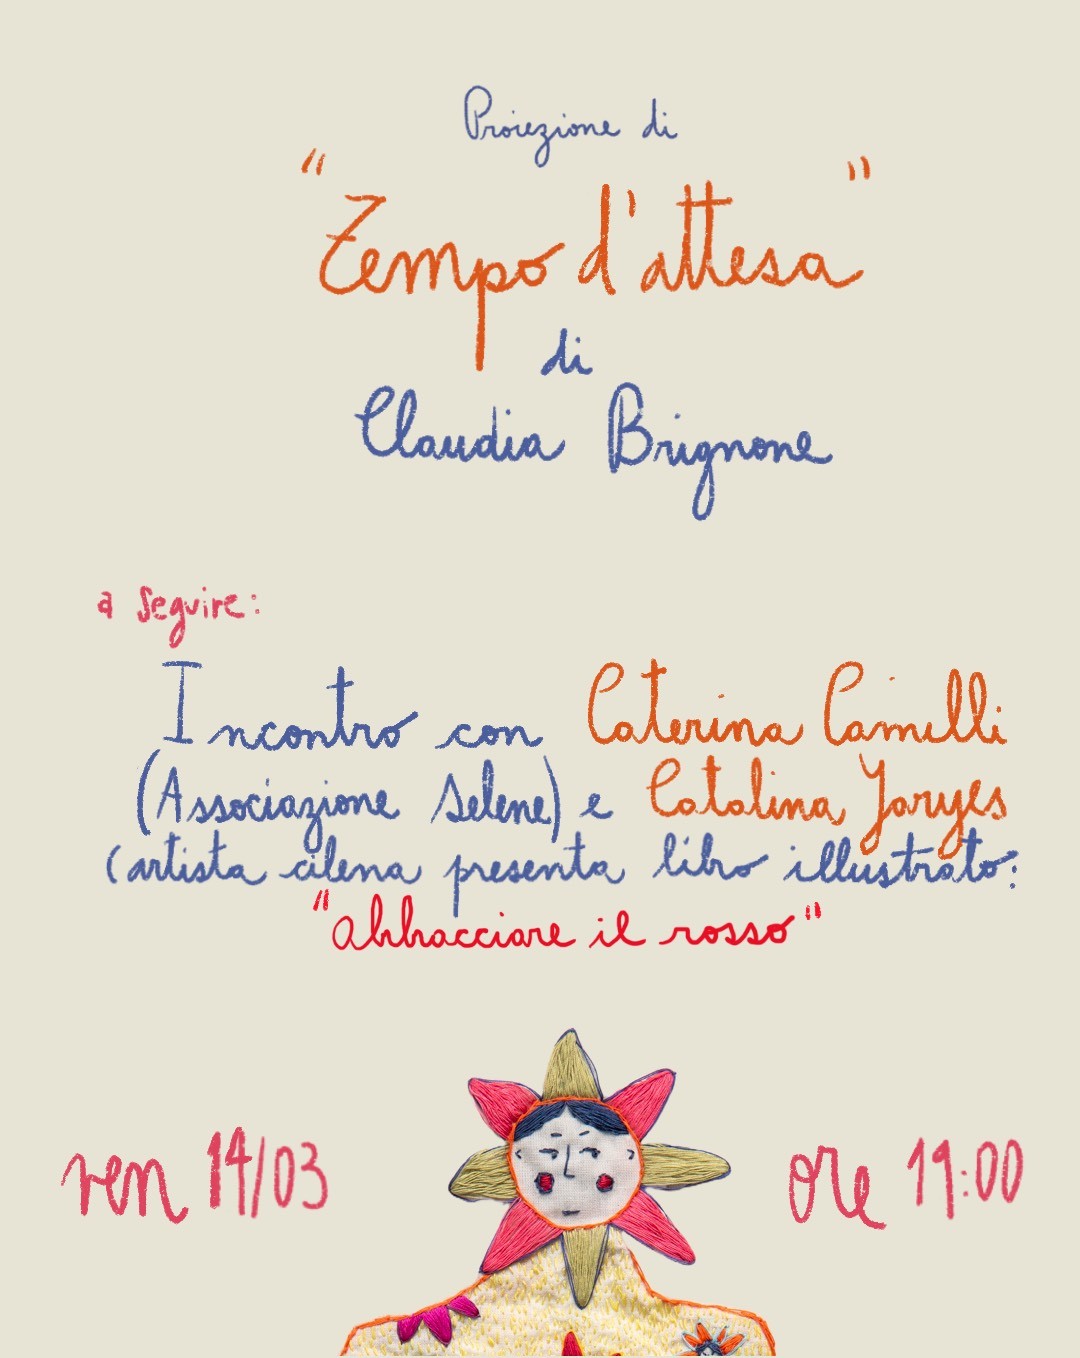 Proiezione di
"Tempo d'attesa"
di
Claudia Brignone
a seguire:
Incontro con Caterina Camilli
(Associazione Selene) e Catalina Jaryes
(artista cilena presenta libro illustrato:
"abbracciare il rosso"
ven 14/03 ore 19:00